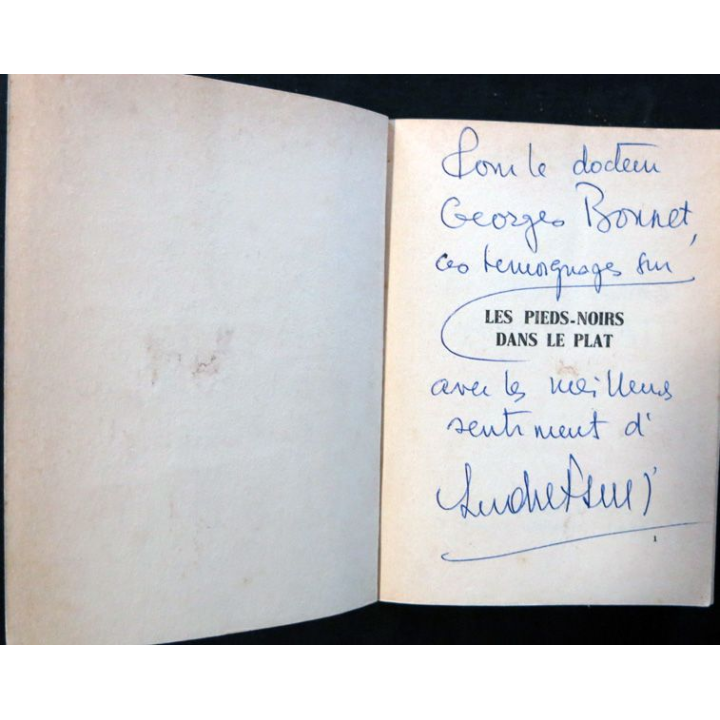 Pour le docteur
Georges Bonnet,
ces temoignages sur
LES PIEDS-NOIRS
DANS LE PLAT
avec les meilleurs
sentiment d'
1